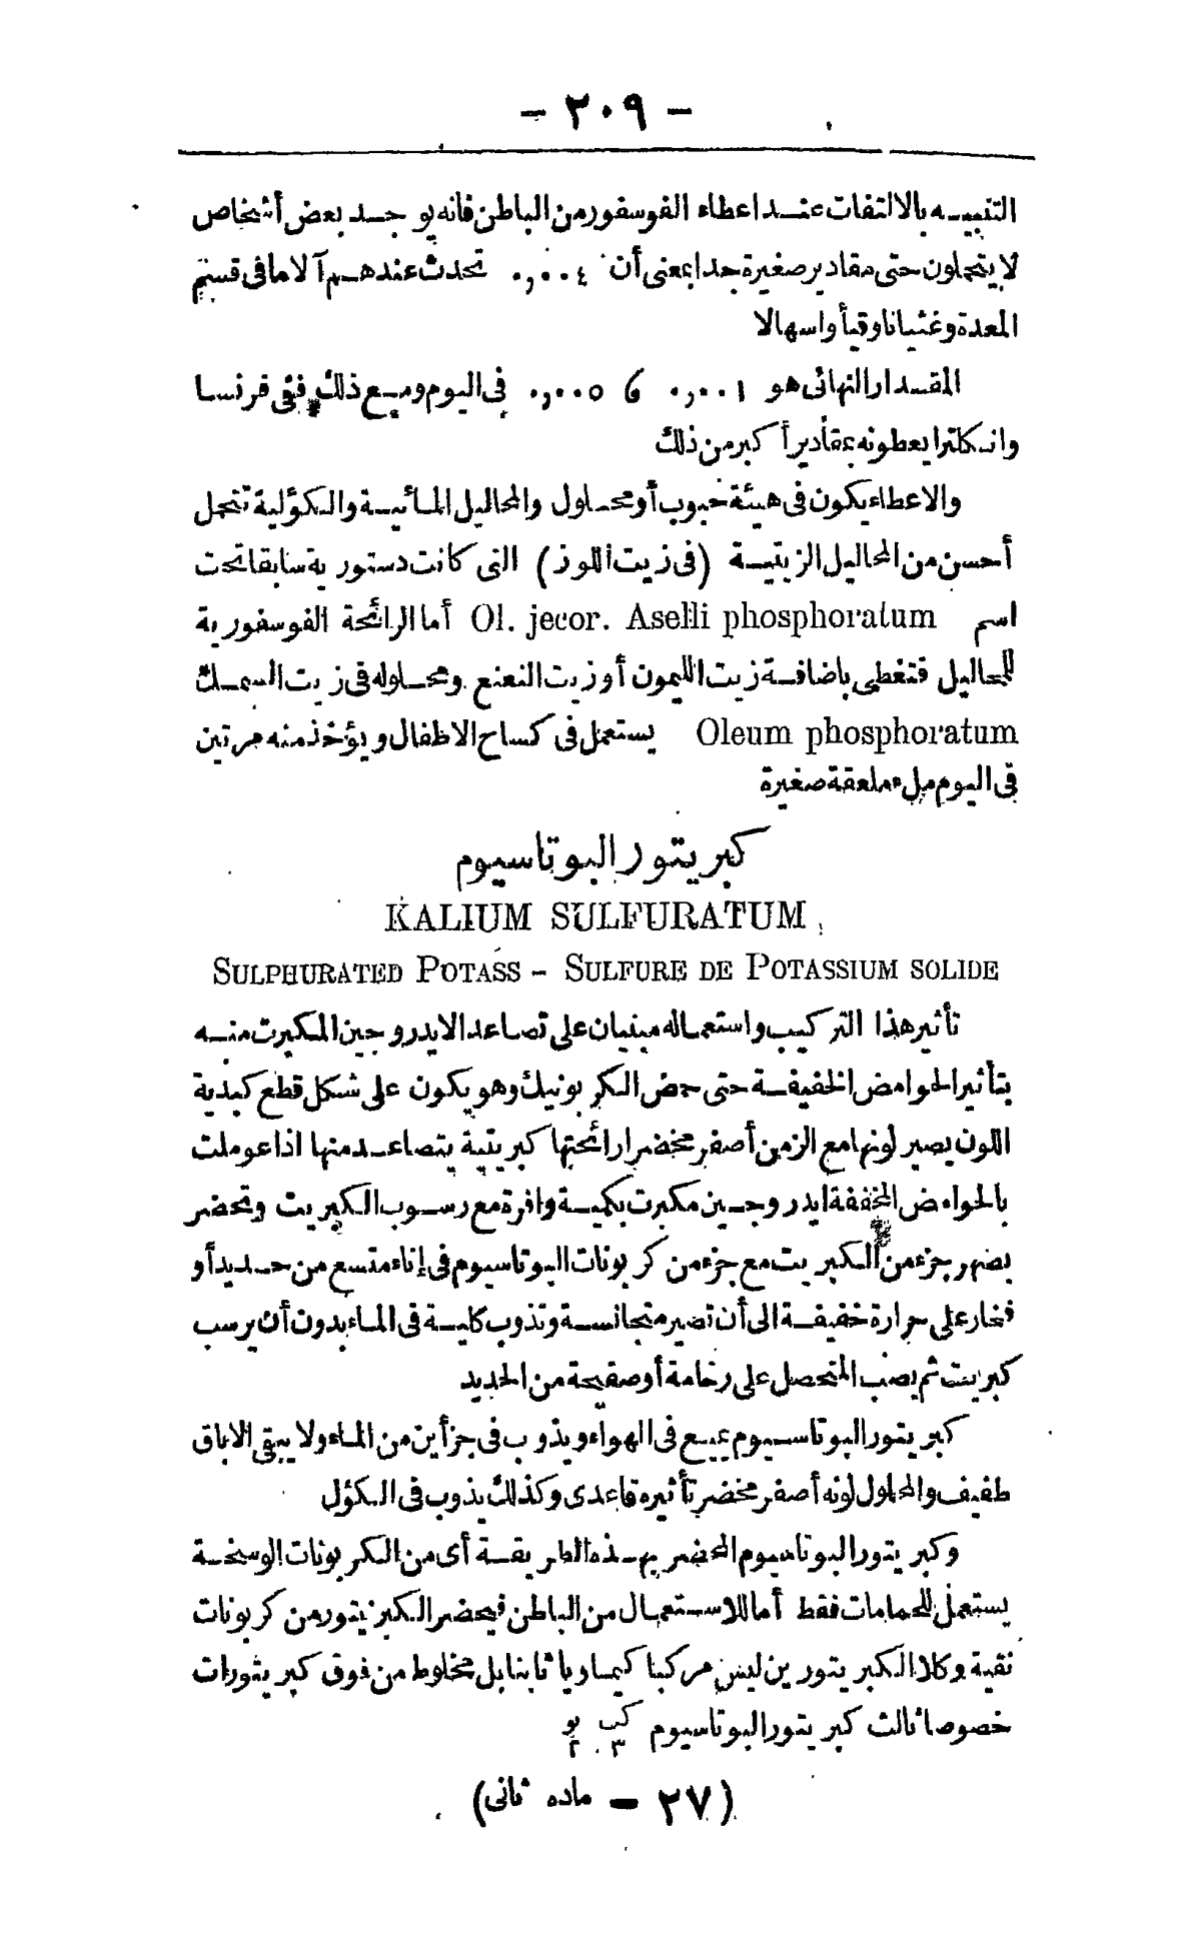 - ٢٠٩ -
التنبيه بالالتفات عند اعطاء الفوسفور من الباطن فانه يوجد بعض أشخاص
لا يتحملون حتى مقادير صغيرة جدا بمعنى أن ٠,٠٠٤ تحدث عندهم آلاما فى قسم
المعدة وغثيانا وقيأ واسهالا
المقدار النهائى هو ٠,٠٠١ و ٠,٠٠٥ فى اليوم ومع ذلك ففى فرنسا
وانكلترا يعطونه بمقادير أكبر من ذلك
والاعطاء يكون فى هيئة حبوب أو محلول والمحاليل المائية والكؤلية تتحمل
أحسن من المحاليل الزيتية (فى زيت اللوز) التى كانت دستورية سابقا تحت
اسم Ol. jecor. Aselli phosphoratum أما الرائحة الفوسفورية
للمحاليل فتغطى باضافة زيت الليمون أو زيت النعنع ومحلوله فى زيت السمك
Oleum phosphoratum يستعمل فى كساح الاطفال ويؤخذ منه مرتين
فى اليوم ملء ملعقة صغيرة
كبريتور البوتاسيوم
KALIUM SULFURATUM
SULPHURATED POTASS - SULFURE DE POTASSIUM SOLIDE
تأثير هذا التركيب واستعماله مبنيان على تصاعد الايدروجين المكبرت منه
بتأثير الحوامض الخفيفة حتى حمض الكربونيك وهو يكون على شكل قطع كبدية
اللون يصير لونها مع الزمن أصفر مخضرا رائحتها كبريتية يتصاعد منها اذا عوملت
بالحوامض المخففة ايدروجين مكبرت بكمية وافرة مع رسوب الكبريت وتحضر
بصهر جزء من الكبريت مع جزء من كربونات البوتاسيوم فى إناء متسع من حديد أو
فخار على حرارة خفيفة الى أن تصير متجانسة وتذوب كلية فى الماء بدون أن يرسب
كبريت ثم يصب المتحصل على رخامة أو صفيحة من الحديد
كبريتور البوتاسيوم يميع فى الهواء ويذوب فى جزأين من الماء ولا يبقى الا باق
طفيف والمحلول لونه أصفر مخضر تأثيره قاعدى وكذلك يذوب فى الكؤل
وكبريتور البوتاسيوم المحضر بهذه الطريقة أى من الكربونات الوسخة
يستعمل للحمامات فقط أما للاستعمال من الباطن فيحضر الكبريتور من كربونات
نقية وكلا الكبريتورين ليس مركبا كيماويا ثابتا بل مخلوط من فوق كبريتورات
خصوصا ثالث كبريتور البوتاسيوم كب٣ بو٢
(٢٧ - ماده ثانى)